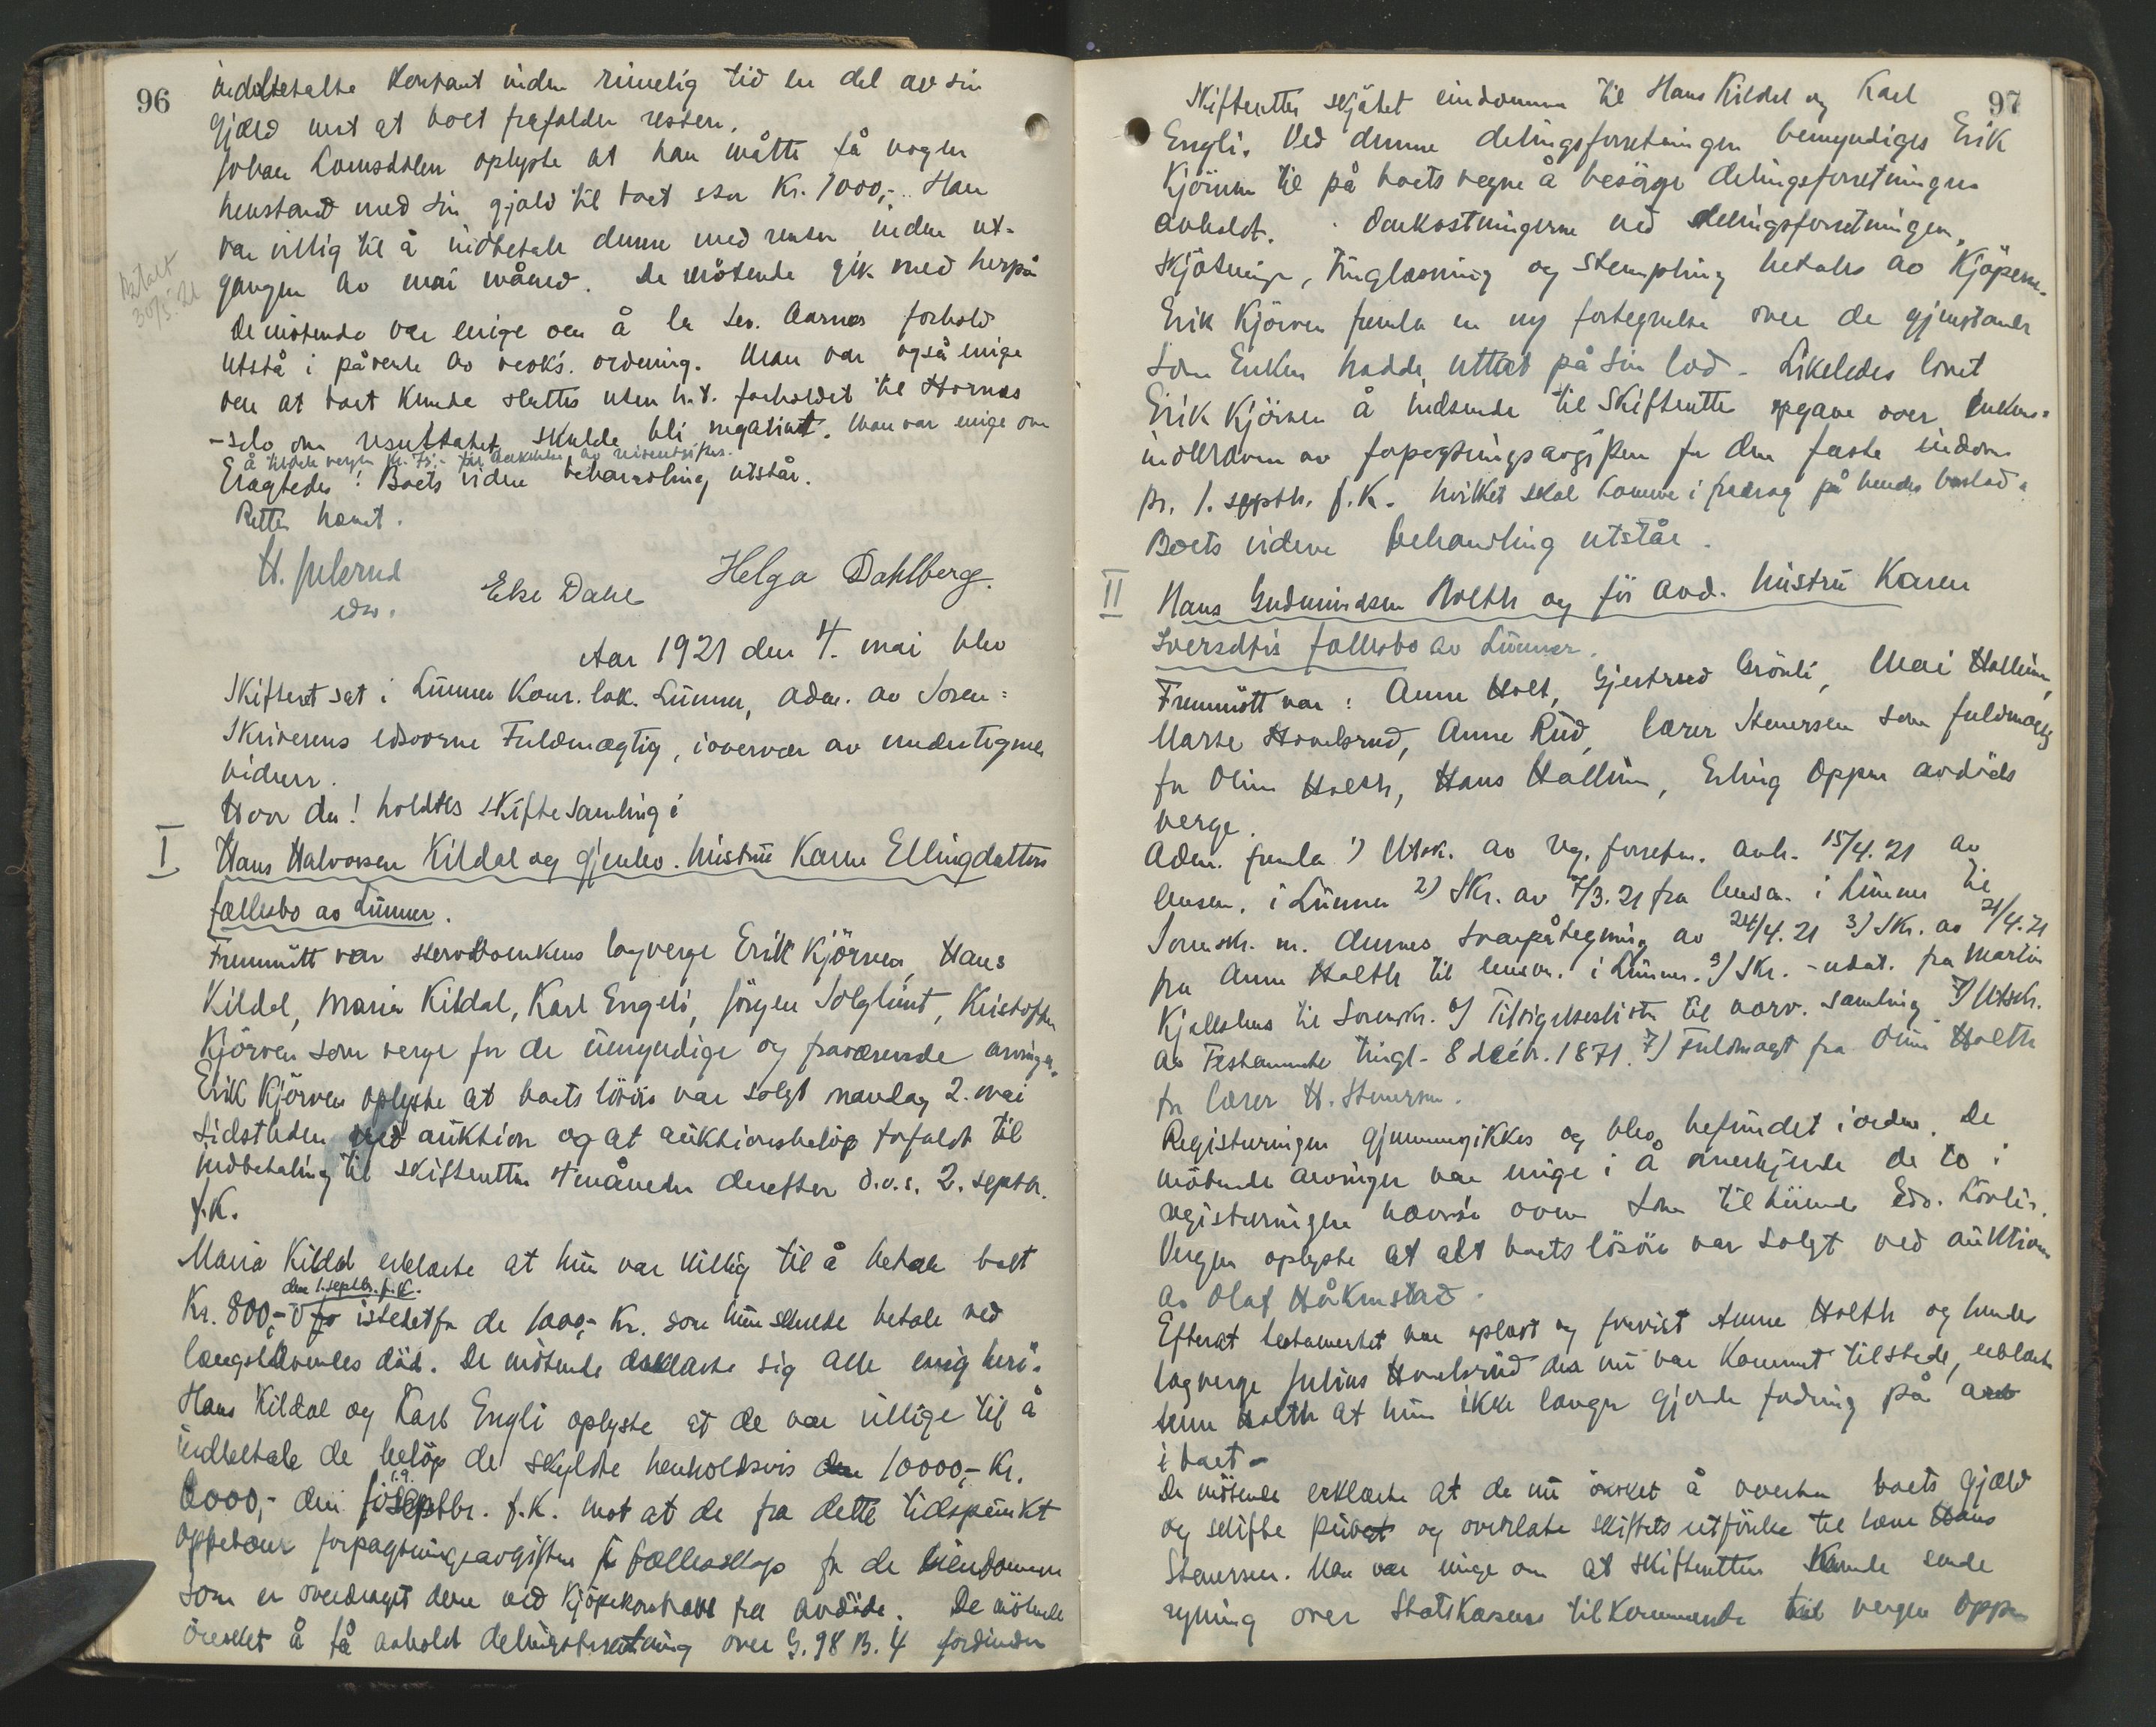 96
indbetalte kontant inden rimelig tid en del av sin
gjæld mot at boet frafalder resten.
Johan Lomsdalen oplyste at han måtte få nogen
henstand med sin gjæld til boet stor Kr. 1000,-. Han
var villig til å indbetale denne med renter inden ut-
gangen av mai måned. De mötende gik med herpå
Betalt
30/5.21
De mötende var enige om å la Aarnes forhold
utstå i påvente av ordning. Man var også enige
om at boet kunde sluttes uten h.t. forholdet til Hornes
-selv om resultatet skulde bli negativt. Man var enige om
å tilstå vergen Kr. 75,- for
Eragtedes! Boets videre behandling utstår.
Retten hævet.
H. Julsrud
edsv.
Else Dahl Helga Dahlberg.
Aar 1921 den 4. mai blev
Skifteret sat i Lunner Komr. lok. Lunner, adm. av Soren-
skriverens edsvorne Fuldmægtig, i overvær av undertegnede
vidner.
Hvor da! holdtes skiftesamling i
I
Hans Halvorsen Kildal og gjenlev. hustru Karen Ellingdatters
fællesbo av Lunner.
Fremmött var stervboenkens lagverge Erik Kjörven, Hans
Kildal, Maria Kildal, Karl Engeli, Jörgen Solglimt, Kristoffer
Kjörven som verge for de umyndige og fraværende arvinger.
Erik Kjörven oplyste at boets lösöre var solgt mandag 2. mai
sidstleden ved auktion og at auktionsbelöp forfaldt til
indbetaling til skifteretten 4 måneder derefter d.v.s. 2. septbr.
f.k.
Maria Kildal erklærte at hun var villig til å betale boet
den 1. septbr. f.k.
Kr. 800,- istedetfor de 1000,- Kr. som hun skulde betale ved
længstlevendes död. De mötende erklærte sig alle enig heri.
Hans Kildal og Karl Engli oplyste at de var villige til å
indbetale de belöp de skyldte henholdsvis 10000,- Kr.
6000,- den 1. septbr. f.k. mot at de fra dette tidspunkt
oppebærer forpagtningsavgiften i fællesskap for de eiendommer
som er overdraget dem ved kjöpekontrakt fra avdöde. De mötende
önsket å få avholdt delingsforretning over G. 98 B. 4 forinden
97
Skifteretten skjötet eiendommen til Hans Kildal og Karl
Engli. Ved denne delingsforretningen bemyndiges Erik
Kjörven til på boets vegne å besörge delingsforretningen
avholdt. Omkostningerne ved delingsforretningen,
skjötning, tinglæsning og stempling betales av kjöperne.
Erik Kjörven fremla en ny fortegnelse over de gjenstande
som Enken hadde uttat på sin lod. Likeledes lovet
Erik Kjörven å indsende til Skifteretten opgave over enkens
av forpagtningsavgiften for den faste eiendom
pr. 1. septbr. f.k. hvilket skal komme i fradrag på hendes boslod.
Boets videre behandling utstår.
II
Hans Gudmundsen Holth og för avd. hustru Karen
Iversdtrs fællesbo av Lunner.
Fremmött var: Anne Holt, Gjertrud Grönli, Mai Hallum,
Marte Hovelsrud, Anne Rud, lærer Stenersen som fuldmægtig
for Oline Holth, Hans Hallum, Erling Oppen avdödes
verge.
Adm. fremla 1) Utsk. av reg. forretn. avh. 15/4.21 av
lensm. i Lunner 2) Skr. av 7/3.21 fra lensm. i Lunner til
Sorenskr. m. dennes svarpåtegning av 24/4.21 3) Skr. av 21/4.21
fra Anne Holth til lensm. i Lunner. Skr. - udat. fra Martin
Kjellshus til Sorenskr. Tilsigelsesliste til nærv. samling Utskr.
av Testamente tingl. 8 decbr. 1871. 7) Fuldmagt fra Oline Holth
for lærer H. Stenersen.
Registreringen gjennemgikkes og blev befundet i orden. De
mötende arvinger var enige i å anerkjende de to i
registreringen nævnte ovner som tilhörende Edv. Lövlie.
Vergen oplyste at alt boets lösöre var solgt ved auktion
av Olaf Håkenstad.
Efterat testamentet var oplæst og forevist Anne Holth og hendes
lagverge Julius Hovelsrud der nu var kommet tilstede, erklærte
Anne Holth at hun ikke længer gjorde fordring på arv
i boet.
De mötende erklærte at de nu önsket å overta boets gjæld
og skifte privat og overlate skiftets utförelse til lærer Hans
Stenersen. Man var enige om at skifteretten kunde sende
regning over Statskassens tilkommende til vergen Oppen